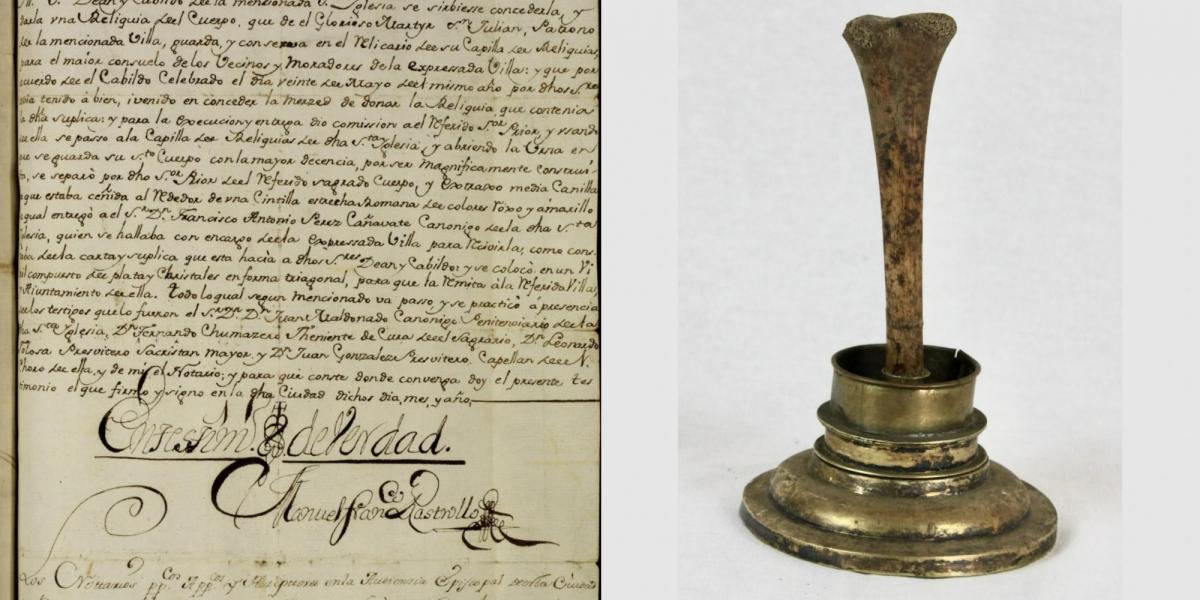 Dean y Cabildo de la mencionada S.ta Iglesia se sirbiesse concederla, y
darla vna Reliquia de el Cuerpo, que de el Glorioso Martyr S.n Julian, Patrono
de la mencionada Villa, guarda, y conserva en el Relicario de su Capilla de Reliquias,
para el maior consuelo de los Vecinos y Moradores de la expressada Villa: y que por
acuerdo de el Cabildo Celebrado el dia veinte de Mayo de el mismo año por dhos S.res
tenido à bien, i venido en conceder la merzed de donar la Reliquia que contenia
la dha suplica: y para la execucion y entrega dio comission a el referido S.or Prior, y vsando
de ella se passo ala Capilla de Reliquias de dha S.ta Iglesia, y abriendo la Vrna en
que se guarda su S.to Cuerpo con la mayor decencia, por ser magnificamente construi-
da, se separò por dho S.or Prior de el referido sagrado Cuerpo, y extraxo media Canilla
que estaba ceñida al Rededor de vna Cintilla estrecha Romana de colores Roxo y amarillo
igual entregò a el S.r D.n Francisco Antonio Perez Cañavate Canonigo de la dha S.ta
Iglesia, quien se hallaba con encargo de la expressada Villa para recivirla, como cons
taba de la carta y suplica que esta hacia a dhos S.res Dean y Cabildo: y se colocò en un Vi
ril compuesto de plata y Christales en forma triagonal, para que la remita à la referida Villa,
y Aiuntamiento de ella. Todo lo qual segun mencionado va passo, y se practicò à presencia
de los testigos que lo fueron el S.r D.n Juan Maldonado Canonigo Penitenciario de la
dha S.ta Iglesia, D.n Fernando Chumazero Theniente de Cura de el Sagrario, D.n Leonardo
Tolosa Presvitero Sacristan mayor, y D.n Juan Gonzalez Presvitero, Capellan de N.
Choro de ella, y de mi el Notario; y para que conste donde convenga doy el presente tes
timonio el que firmo y signo en la dha Ciudad dichos dia, mes, y año,
En testim.o de Verdad.
Manuel Fran.co Rastrollo
Los Notarios pp.cos App.cos y Receptores en la Audiencia Episcopal de esta Ciudad